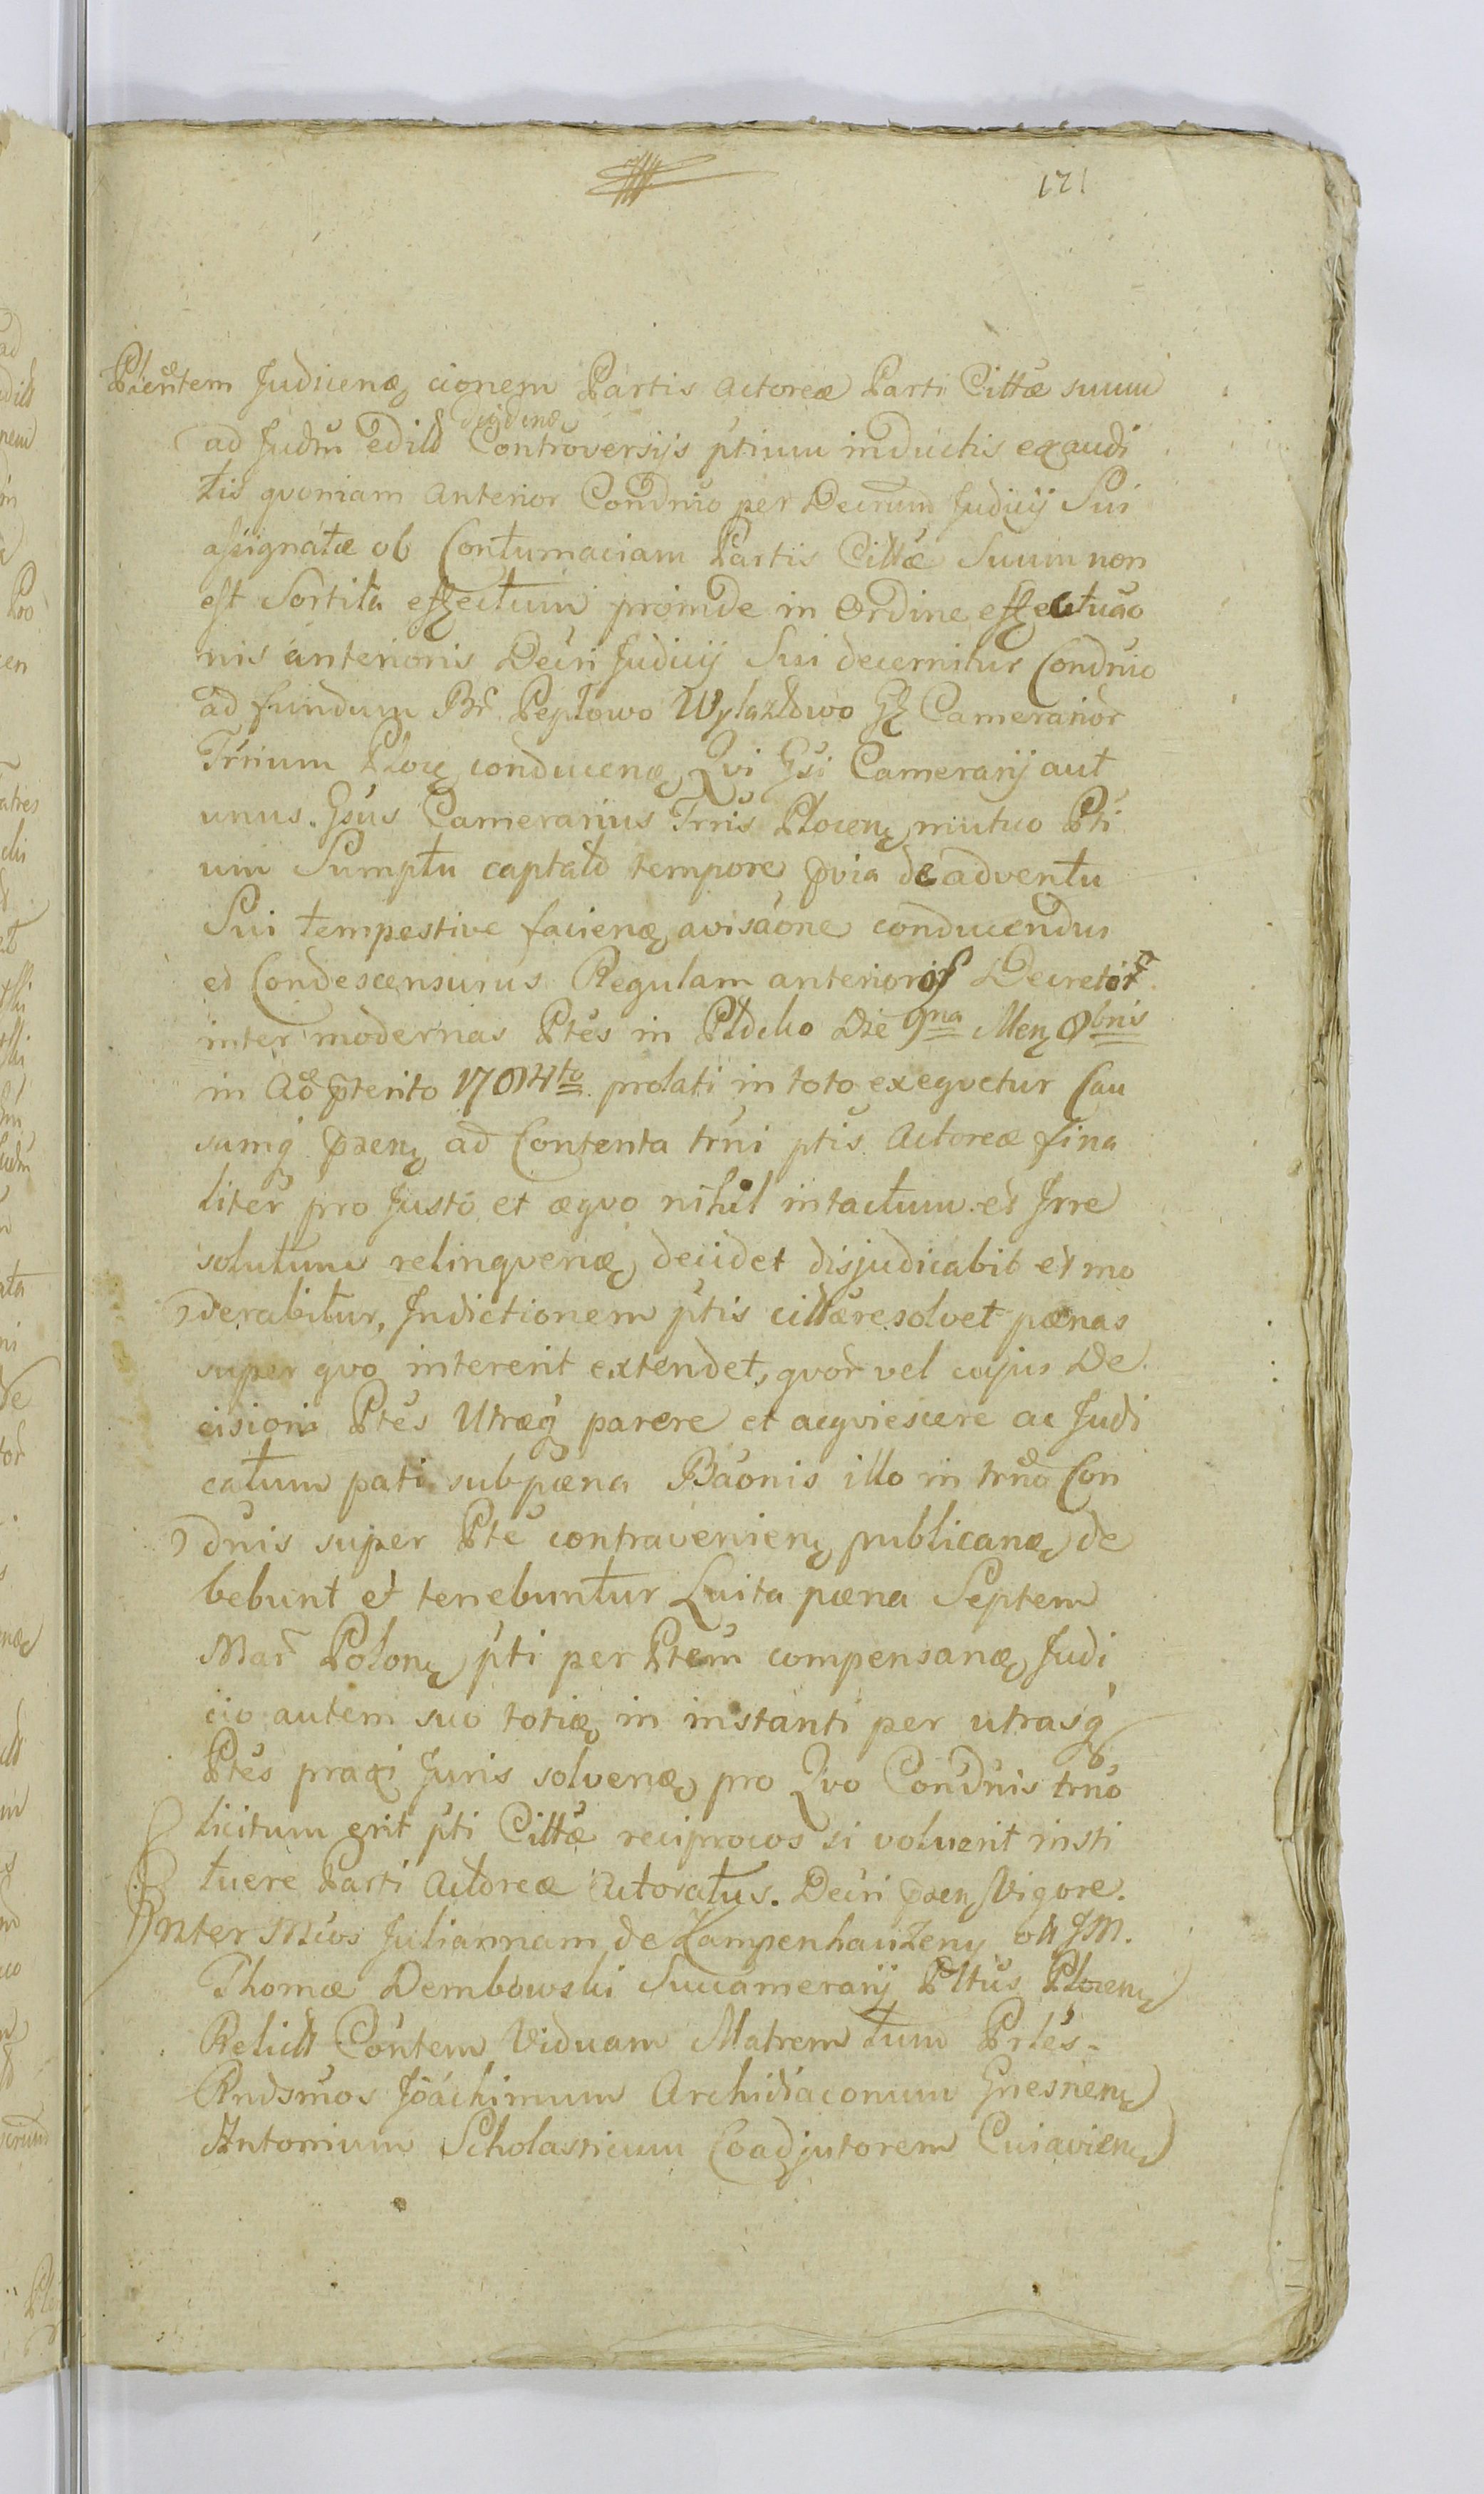 121
Ptentem Judicenæ cionem Partis Actoreæ Parti Cittæ suum
dijdenæ
ad Judm edild Controversijs ptium inductis exaudi
tis qvoniam anterior Condnio per Decrum Judicij Sui
assignatæ ob Contumaciam Partis Cittæ Suum non
est Sortita effectum proinde in Ordine effectuao
nis anterioris Decri Judicij Sui decernitur Condnio
ad fundum Br. Peplowo Wylazlowo Gf Camerarior
Trrium Ploc conducenæ Qvi Gsi Camerarij aut
unus Gsus Camerarius Trris Plocen mutuo Pti
um Sumptu captato tempore pvia de adventu
Sui tempestive facienæ avisaone conducendus
et Condescensurus Regulam anterioris Decreti
inter modernas Ptes in Pldcko Die 9na Men 8bris
in Ao pterito 1704to prolati in toto exeqvetur Cau
samq pxen ad Contenta trni ptis Actoreæ fina
liter pro Justo et æqvo nihil intactum et Irre
solutum relinqvenæ decidet disjudicabit et mo
derabitur, Indictionem ptis cittæ resolvet pænas
super qvo intererit extendet, qvor vel cujus De
cisioni Ptes Utræq parere et acqviescere ac Judi
catum pati sub pæna Baonis illo in trno Con
dnis super Pte contravenien publicanæ de
bebunt et tenebuntur Luita pæna Septem
Mar Polon pti per Ptem compensanæ Judi
cio autem suo totiæ in instanti per utrasq
Ptes praxi Juris solvenæ pro Qvo Condnis trno
licitum erit pti Cittæ reciprocos si voluerit insti
tuere Parti Actoreæ Actoratus. Decri pxen Vigore.
Inter Mcos Juliannam de Kampenhauzeny olt JM.
Thomæ Dembowski Succamerarij Pltus Plocen
Relict Contem Viduam Matrem tum Prles
Rndsmos Joachimum Archidiaconum Gnesnen
Antonium Scholasticum Coadjutorem Cuiavien